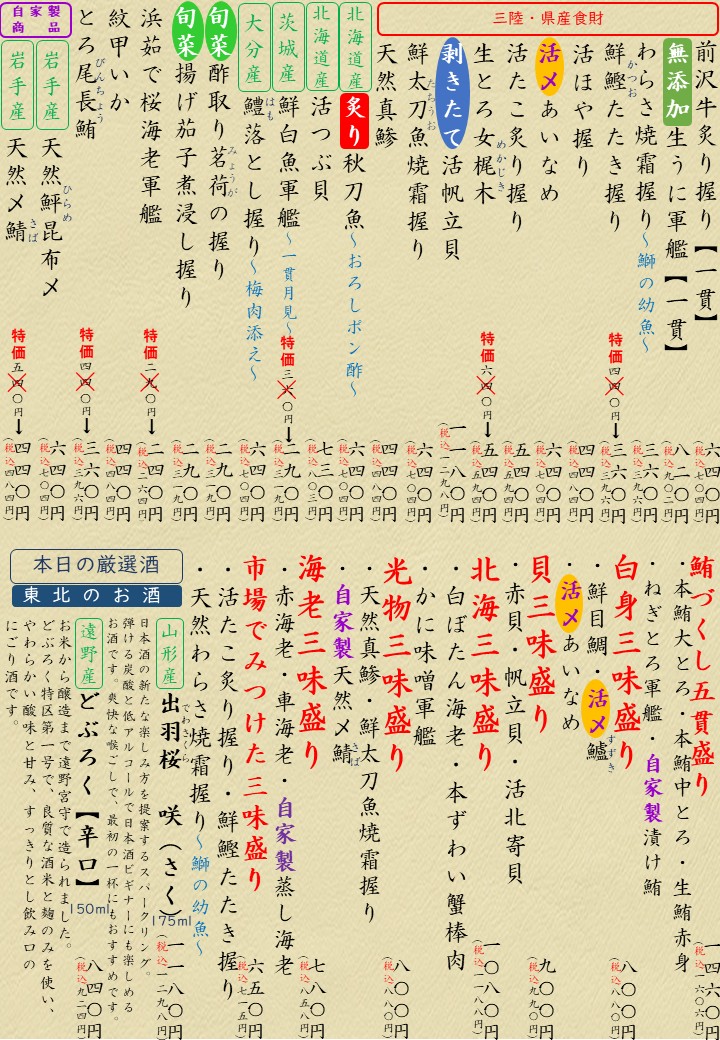 三陸・県産食財
前沢牛炙り握り【一貫】 六四〇円 (税込七〇四円)
無添加 生うに軍艦【一貫】 八二〇円 (税込九〇二円)
わらさ焼霜握り～鰤の幼魚～ 三六〇円 (税込三九六円)
鮮鰹たたき握り かつお 特価 四四〇円→三六〇円 (税込三九六円)
活ほや握り 四四〇円 (税込四八四円)
活〆あいなめ 六四〇円 (税込七〇四円)
活たこ炙り握り 五四〇円 (税込五九四円)
生とろ女梶木 めかじき 特価 六四〇円→五四〇円 (税込五九四円)
剥きたて 活帆立貝 一一八〇円 (税込一二九八円)
鮮太刀魚焼霜握り たちうお 六四〇円 (税込七〇四円)
天然真鯵 四四〇円 (税込四八四円)
北海道産 炙り 秋刀魚～おろしポン酢～ 六四〇円 (税込七〇四円)
北海道産 活つぶ貝 七三〇円 (税込八〇三円)
茨城産 鮮白魚軍艦～一貫月見～ 特価 三六〇円→二九〇円 (税込三一九円)
大分産 鱧落とし握り～梅肉添え～ はも 六四〇円 (税込七〇四円)
旬菜 酢取り茗荷の握り みょうが 二九〇円 (税込三一九円)
旬菜 揚げ茄子煮浸し握り 二九〇円 (税込三一九円)
浜茹で桜海老軍艦 特価 二九〇円→二四〇円 (税込二六四円)
紋甲いか 四四〇円 (税込四八四円)
とろ尾長鮪 びんちょう 特価 四四〇円→三六〇円 (税込三九六円)
自家製商品
岩手産 天然鮃昆布〆 ひらめ 六四〇円 (税込七〇四円)
岩手産 天然〆鯖 さば 特価 五四〇円→四四〇円 (税込四八四円)
鮪づくし五貫盛り 一四六〇円 (税込一六〇六円)
・本鮪大とろ・本鮪中とろ・生鮪赤身
・ねぎとろ軍艦・自家製漬け鮪
白身三味盛り 八〇〇円 (税込八八〇円)
・鮮目鯛・活〆鱸 すずき
・活〆あいなめ
貝三味盛り 九〇〇円 (税込九九〇円)
・赤貝・帆立貝・活北寄貝
北海三味盛り 一〇八〇円 (税込一一八八円)
・白ぼたん海老・本ずわい蟹棒肉
・かに味噌軍艦
光物三味盛り 八〇〇円 (税込八八〇円)
・天然真鯵・鮮太刀魚焼霜握り
・自家製天然〆鯖 さば
海老三味盛り 七八〇円 (税込八五八円)
・赤海老・車海老・自家製蒸し海老
市場でみつけた三味盛り 六五〇円 (税込七一五円)
・活たこ炙り握り・鮮鰹たたき握り
・天然わらさ焼霜握り～鰤の幼魚～
本日の厳選酒
東北のお酒
山形産 出羽桜 咲(さく) でわさくら 175ml 一一八〇円 (税込一二九八円)
日本酒の新たな楽しみ方を提案するスパークリング。
弾ける炭酸と低アルコールで日本酒ビギナーにも楽しめる
お酒です。爽快な喉ごしで、最初の一杯にもおすすめです。
遠野産 どぶろく【辛口】 150ml 八四〇円 (税込九二四円)
お米から醸造まで遠野宮守で造られました。
どぶろく特区第一号で、良質な酒米と麹のみを使い、
やわらかい酸味と甘み、すっきりとし飲み口の
にごり酒です。